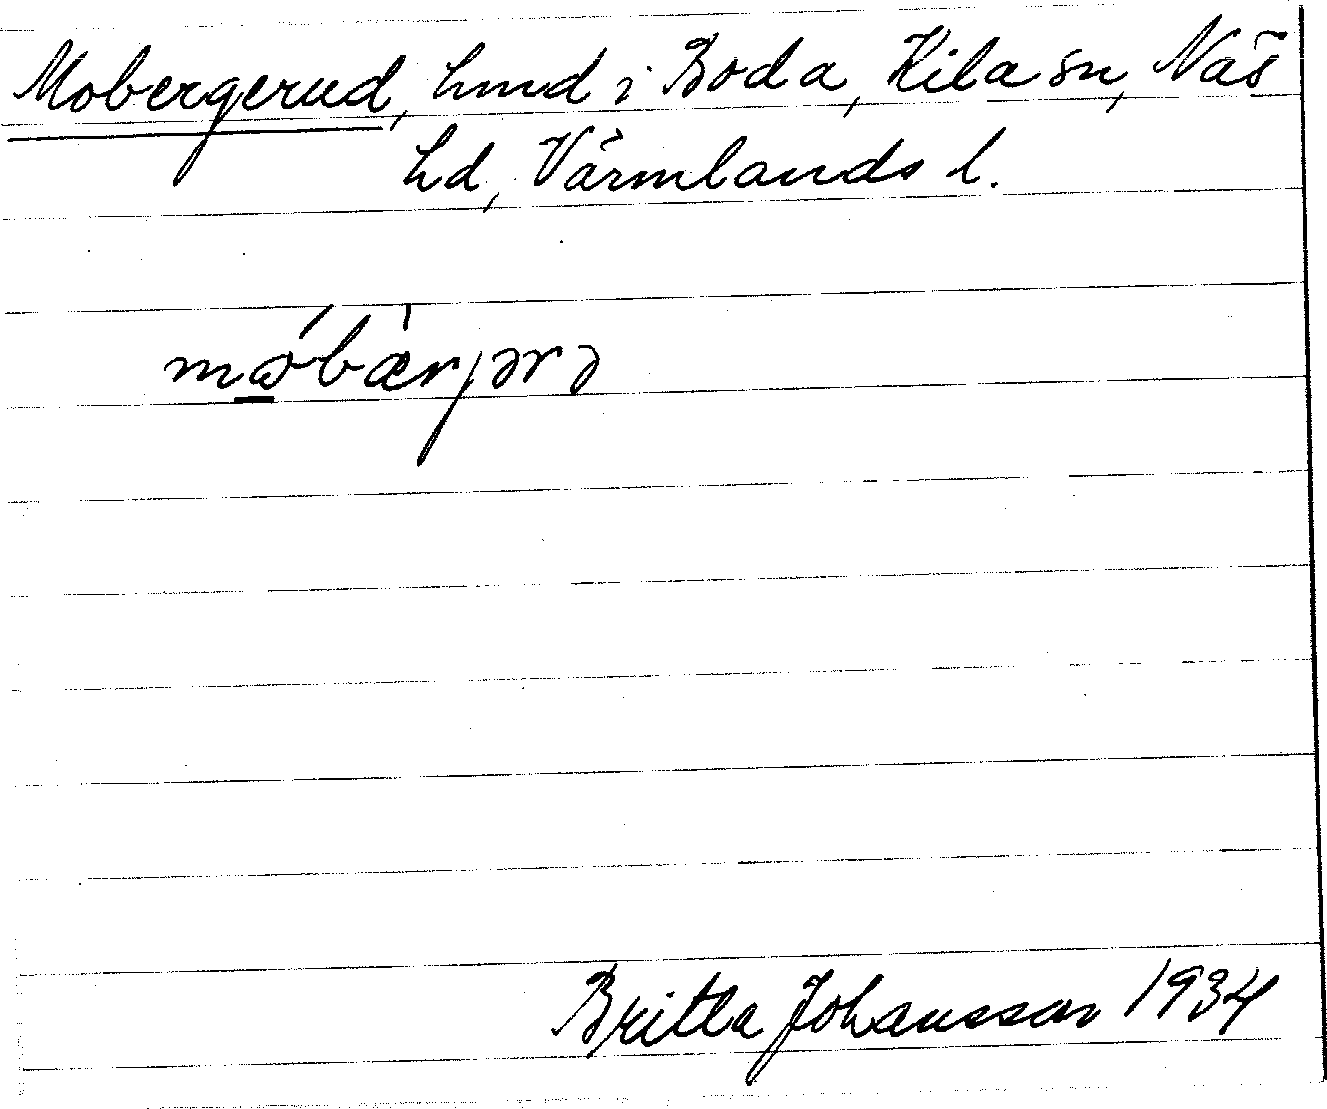 Mobergerud, hmd i Boda, Kila sn, Näs
hd, Värmlands l.
Britta Johansson 1934